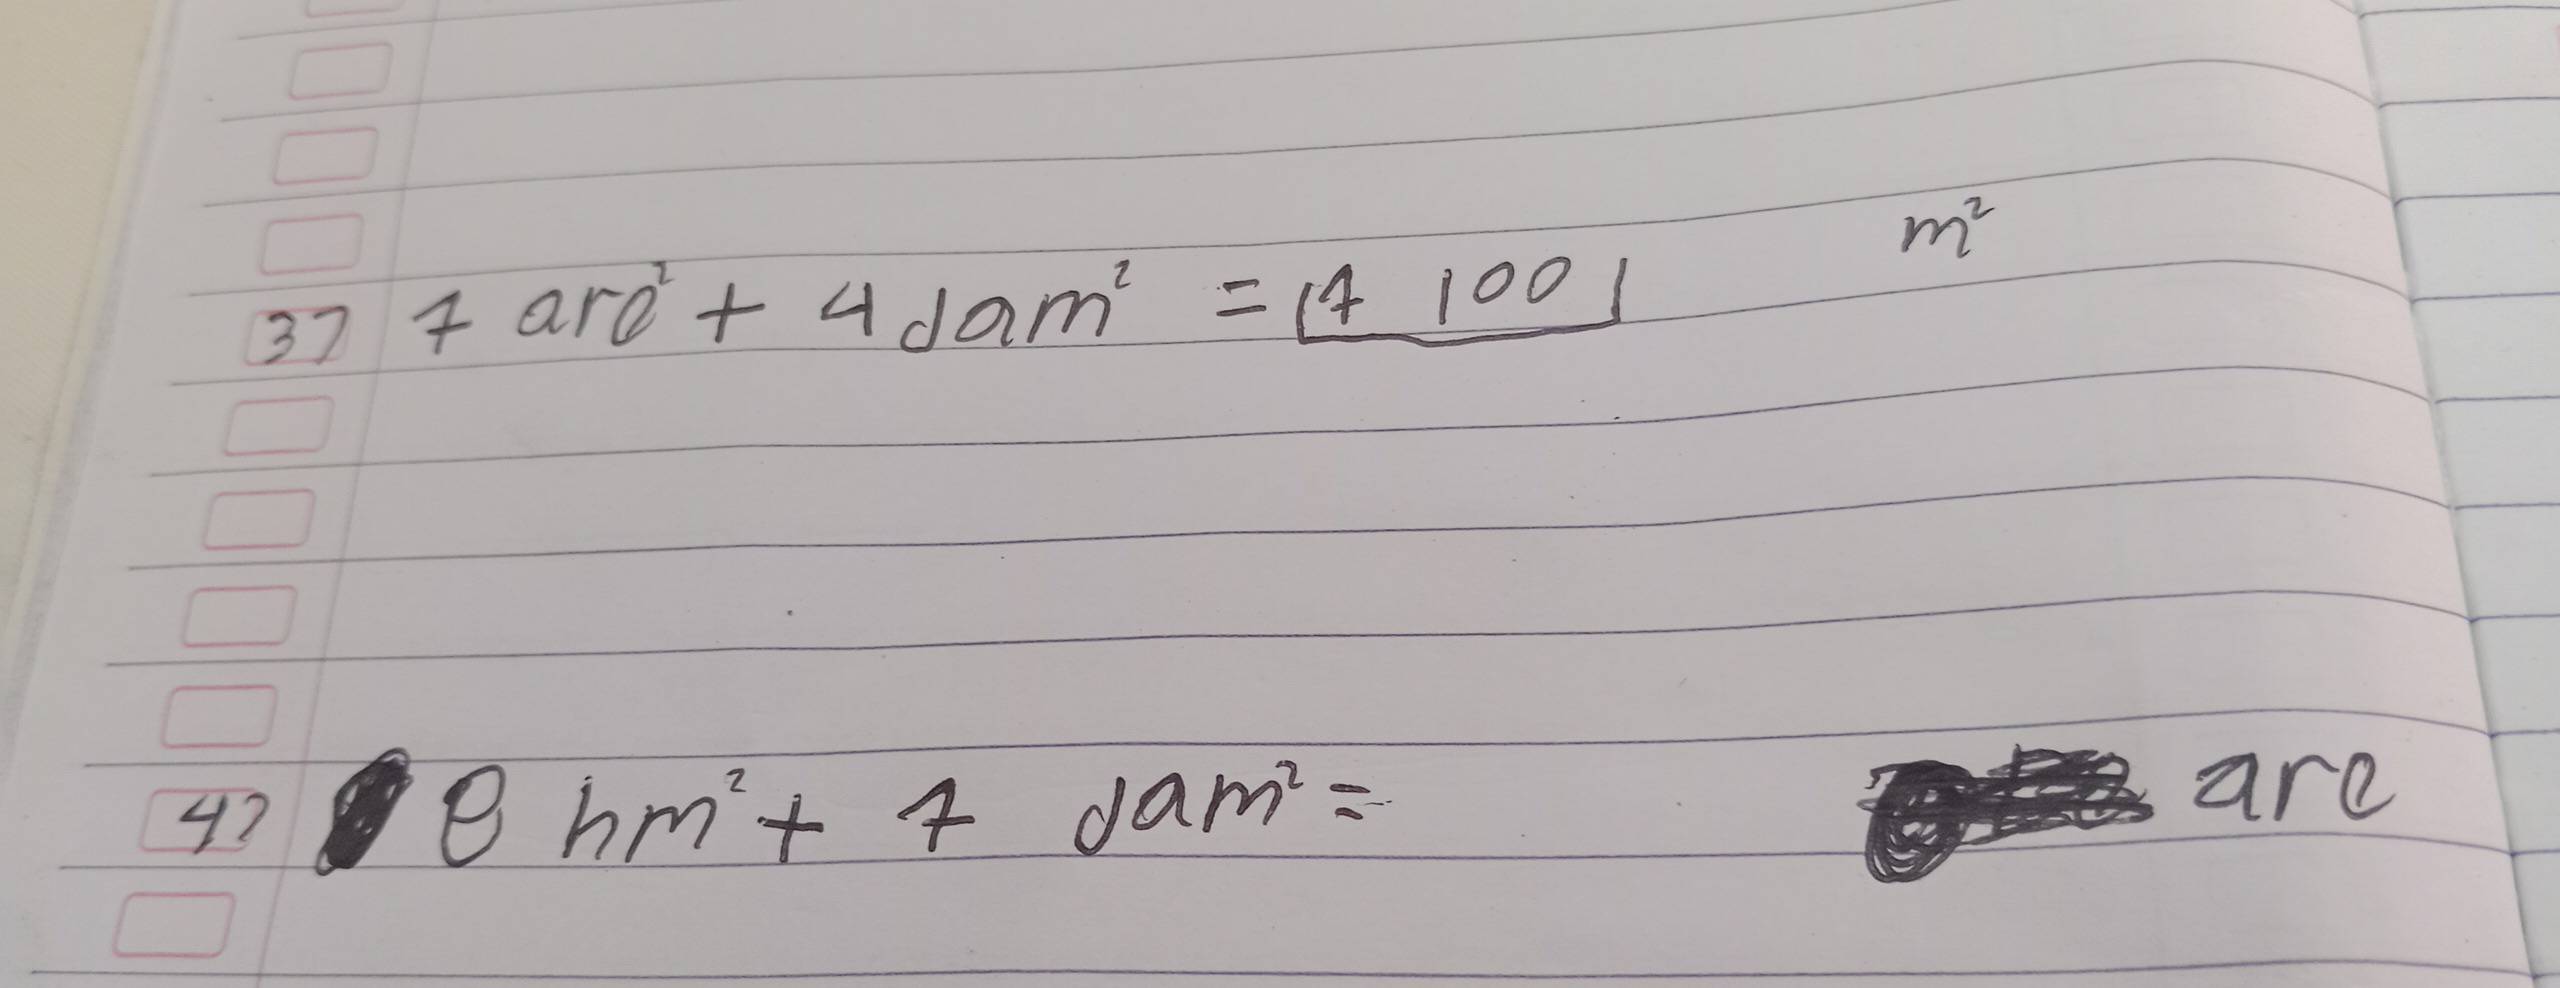 37 7 are² + 4 dam² = 7 100 m²
47 8 hm² + 7 dam² = are